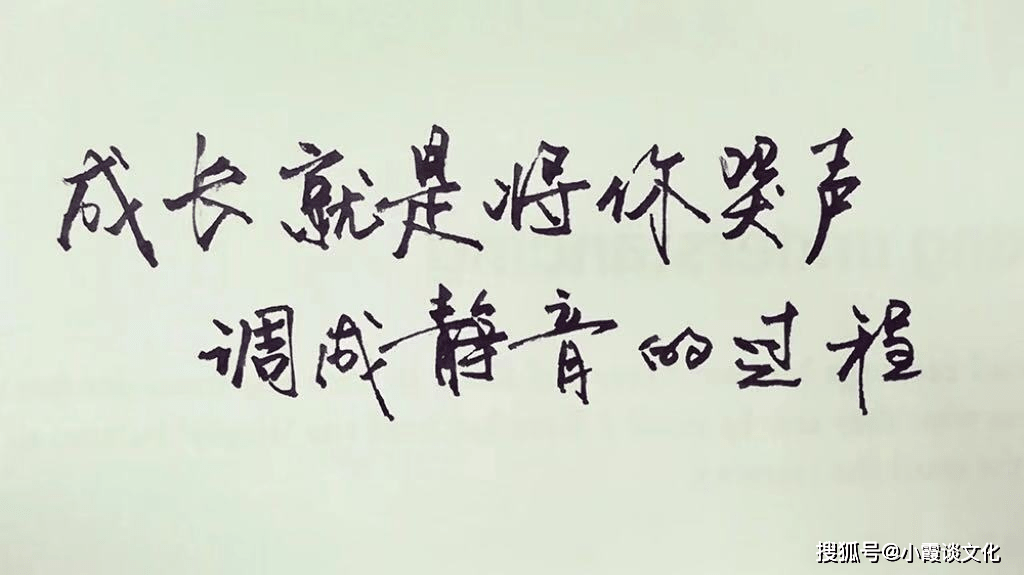 成长就是将你哭声
调成静音的过程
搜狐号@小霞谈文化